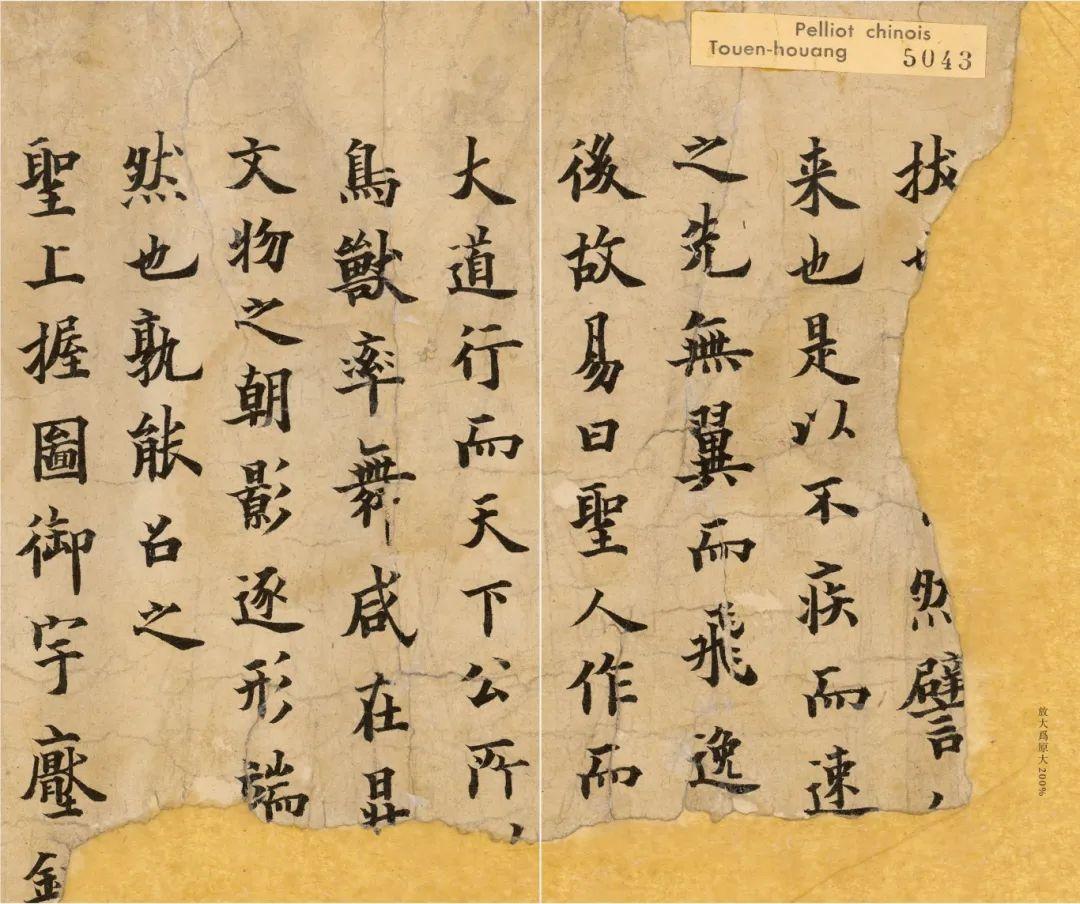 Pelliot chinois
Touen-houang 5043
拔
然譬
来也是以不疾而速
之先無翼而飛逸
後故易曰聖人作而
大道行而天下公所
鳥獸率舞咸在
文物之朝影逐形端
然也孰能召之
聖上握圖御宇廛
放大爲原大200%